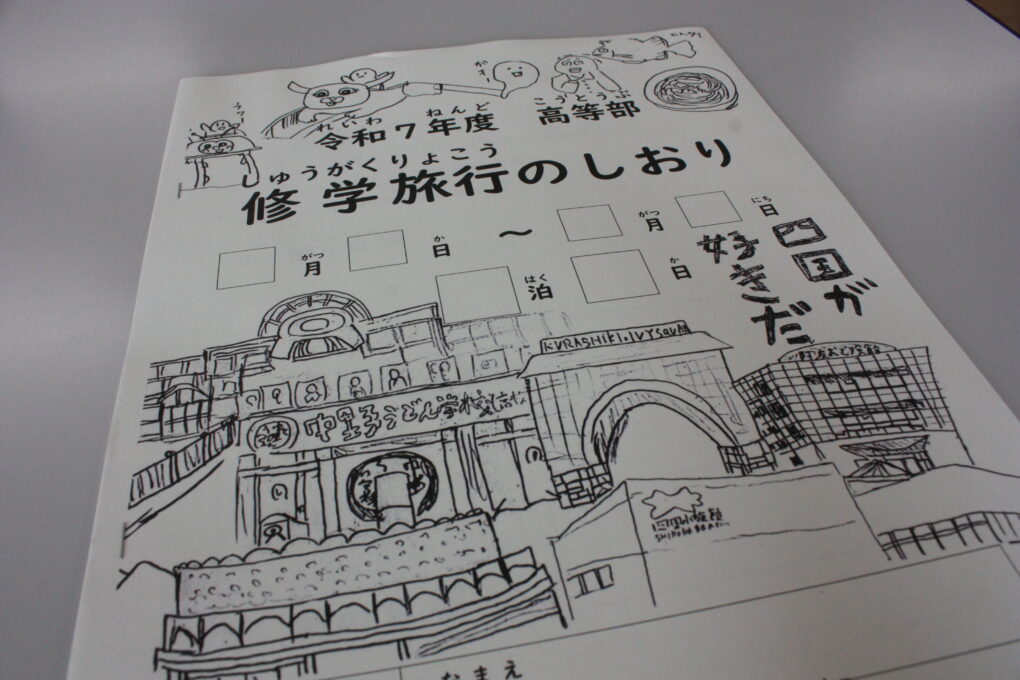 ガオー
れいわ ねんど こうとうぶ
令和7年度 高等部
しゅうがくりょこう
修学旅行のしおり
がつ か がつ にち
月 日 〜 月 日
はく か
泊 日
四国が
好きだ
KURASHIKI・IVYSQUARE
中野うどん学校
四国水族館
なまえ